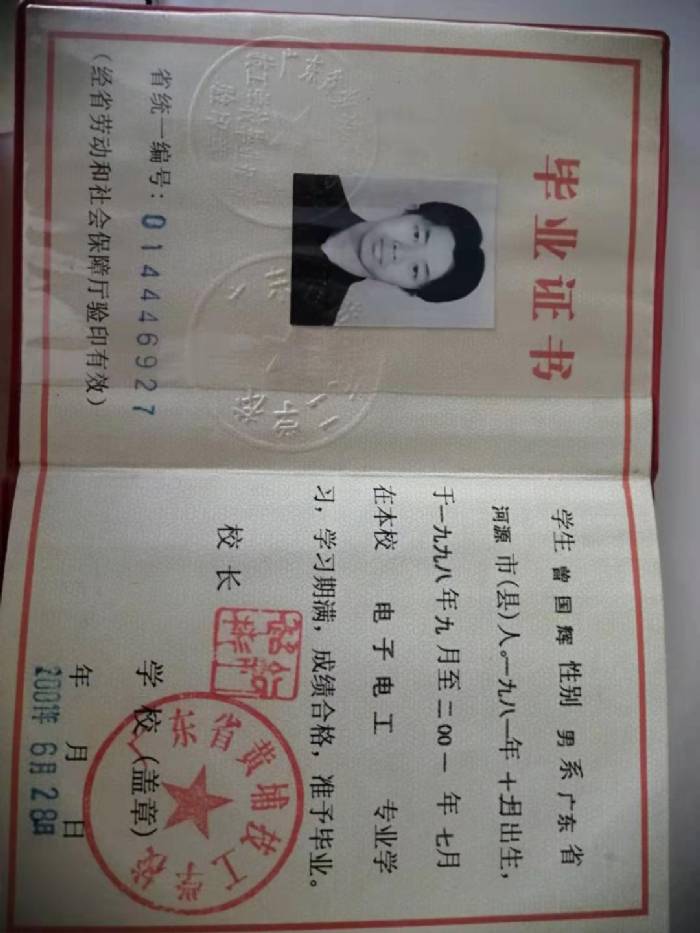 毕业证书
省统一编号：014446927
（经省劳动和社会保障厅验印有效）
学生 曾国辉 性别 男 系 广东 省
河源 市(县)人。一九八一年 月出生，
于一九九八年九月至二00一年七月
在本校 电子电工 专业学
习，学习期满，成绩合格，准予毕业。
校长
学校(盖章)
东省黄埔技工学校
年 月 日
2001年6月28日